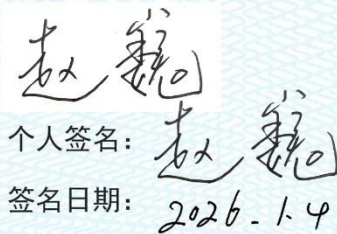 赵巍
个人签名：赵巍
签名日期：2026.1.4